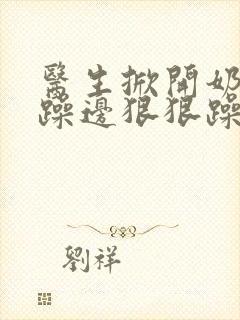 醫生掀開奶
躁邊狠狠躁
劉祥